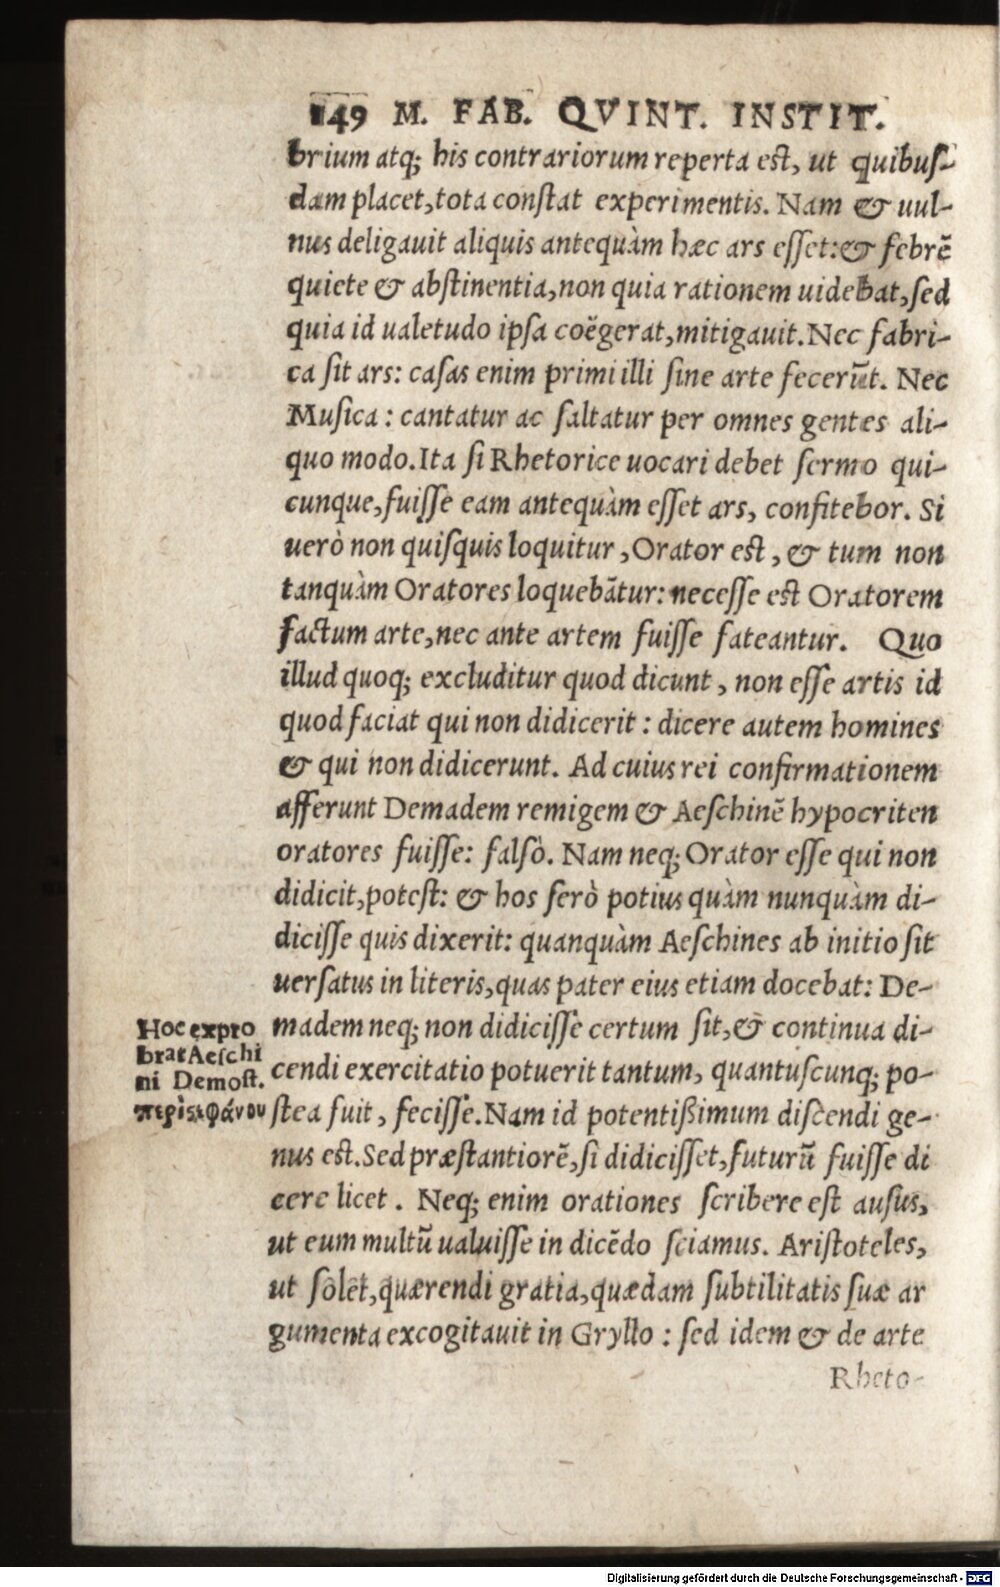 149 M. FAB. QVINT. INSTIT.
brium atq; his contrariorum reperta eſt, ut quibuſ-
dam placet, tota conſtat experimentis. Nam & uul-
nus deligauit aliquis antequàm hæc ars eſſet: & febrẽ
quiete & abſtinentia, non quia rationem uidebat, ſed
quia id ualetudo ipſa coëgerat, mitigauit. Nec fabri-
ca ſit ars: caſas enim primi illi ſine arte fecerũt. Nec
Muſica: cantatur ac ſaltatur per omnes gentes ali-
quo modo. Ita ſi Rhetorice uocari debet ſermo qui-
cunque, fuiſſe eam antequàm eſſet ars, confitebor. Si
uerò non quiſquis loquitur, Orator eſt, & tum non
tanquàm Oratores loquebãtur: neceſſe eſt Oratorem
factum arte, nec ante artem fuiſſe fateantur. Quo
illud quoq; excluditur quod dicunt, non eſſe artis id
quod faciat qui non didicerit: dicere autem homines
& qui non didicerunt. Ad cuius rei confirmationem
afferunt Demadem remigem & Aeſchinẽ hypocriten
oratores fuiſſe: falſò. Nam neq; Orator eſſe qui non
didicit, poteſt: & hos ſerò potius quàm nunquàm di-
diciſſe quis dixerit: quanquàm Aeſchines ab initio ſit
uerſatus in literis, quas pater eius etiam docebat: De-
madem neq; non didiciſſe certum ſit, & continua di-
cendi exercitatio potuerit tantum, quantuſcunq; po-
ſtea fuit, feciſſe. Nam id potentißimum diſcendi ge-
nus eſt. Sed præſtantiorẽ, ſi didiciſſet, futurũ fuiſſe di
cere licet. Neq; enim orationes ſcribere eſt auſus,
ut eum multũ ualuiſſe in dicẽdo ſciamus. Ariſtoteles,
ut ſolet, quærendi gratia, quædam ſubtilitatis ſuæ ar
gumenta excogitauit in Gryllo: ſed idem & de arte
Rheto-
Hoc expro
brat Aeſchi
ni Demoſt.
περὶ ϛεφάνου
Digitalisierung gefördert durch die Deutsche Forschungsgemeinschaft - DFG